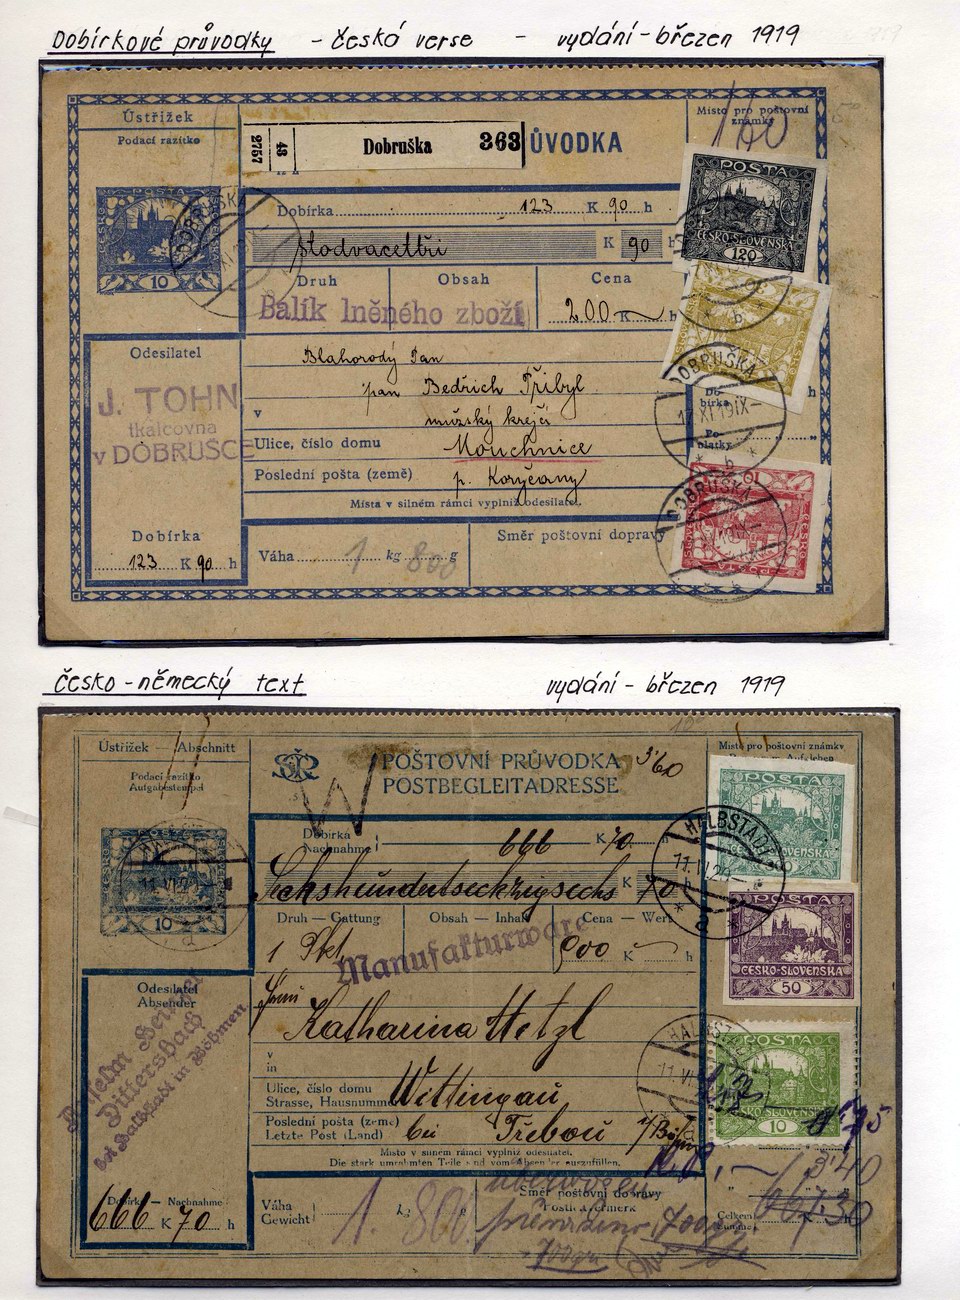 Dobírkové průvodky - česká verse - vydání - březen 1919
Ústřižek
Podací razítko
2757
43
Dobruška 363
ŮVODKA
Místo pro poštovní
známky
160
POŠTA
ČESKO-SLOVENSKÁ
120
POŠTA
10
DOBRUŠKA
Dobírka 123 K 90 h
stodvacettři K 90 h
Druh Obsah Cena
Balík lněného zboží 200 K h
Odesilatel
J. TOHN
tkalcovna
v DOBRUŠCE
Blahorodý Pan
pan Bedřich Přibyl
v mužský krejčí
Ulice, číslo domu Mouchnice
Poslední pošta (země) p. Koryčany
Místa v silném rámci vyplniž odesilatel.
Do-
bírka
Po-
platky
h
DOBRUŠKA
DOBRUŠKA
Dobírka
123 K 90 h
Váha 1 kg 800 g
Směr poštovní dopravy
česko-německý text vydání - březen 1919
Ústřižek — Abschnitt
Podací razítko
Aufgabestempel
POŠTOVNÍ PRŮVODKA
POSTBEGLEITADRESSE
3'60
Místo pro poštovní známky
W
POŠTA
10
Dobírka
Nachnahme 666 K 70 h
Sechshundertsechzigsechs K 70 h
HALBSTADT
11.VI.20
a
Druh — Gattung Obsah — Inhalt Cena — Wert
1 Pkt. Manufakturware 900 K h
POŠTA
ČESKO-SLOVENSKA
50
Odesilatel
Absender
Dittersbach
bei Halbstadt in Böhmen
Katharina Hetzl
v
in
Ulice, číslo domu
Strasse, Hausnummer Wittingau
Poslední pošta (země)
Letzte Post (Land) bei Třeboň
Místo v silném rámci vyplniž odesilatel.
Die stark umrahmten Teile sind vom Absender auszufüllen.
POŠTA
ČESKO SLOVENSKÁ
10
Dobírka — Nachnahme
666 K 70 h
Váha
Gewicht 1. 800
Směr poštovní dopravy
700 gr
3'40
667.30